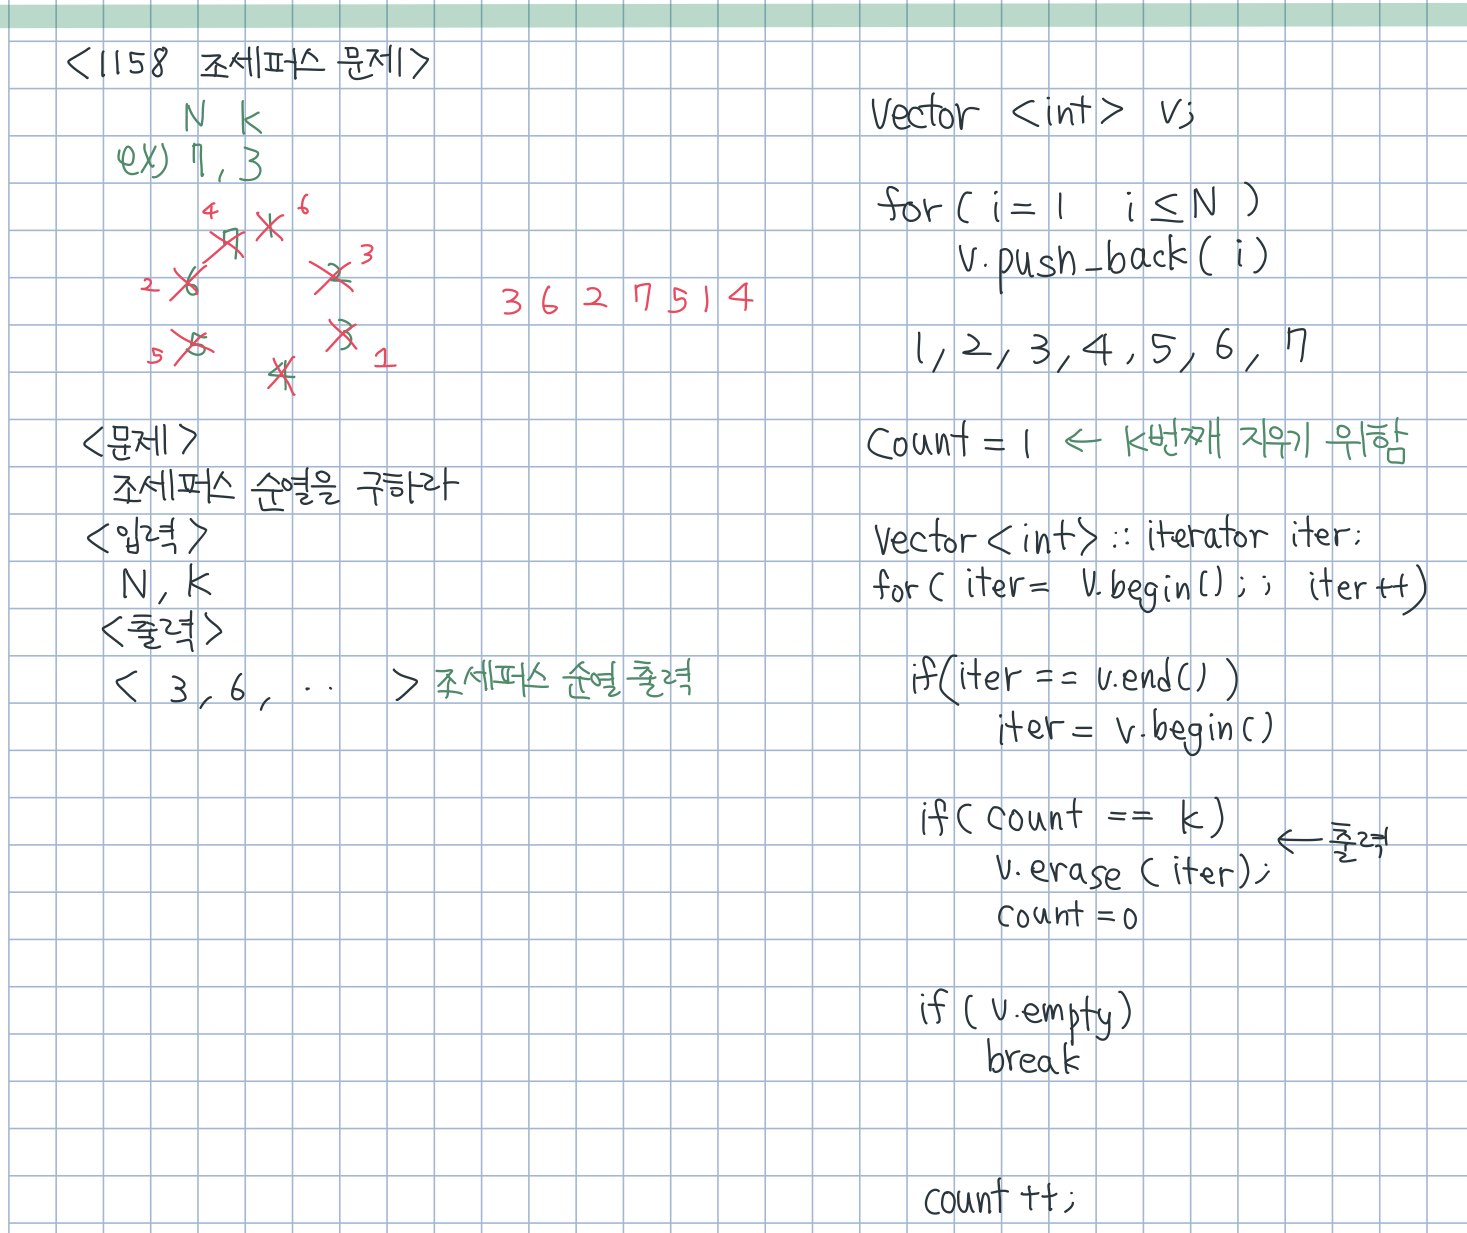 <1158 조세퍼스 문제>
N k
ex) 7, 3
4 6
7 1
2 6 2 3
5 5 3 1
4
3 6 2 7 5 1 4
<문제>
조세퍼스 순열을 구하라
<입력>
N, K
<출력>
< 3, 6, ·· > 조세퍼스 순열 출력
Vector <int> v;
for( i = 1 i ≤ N )
v.push_back( i )
1, 2, 3, 4, 5, 6, 7
Count = 1 ← K번째 지우기 위함
Vector<int> :: iterator iter;
for( iter = v.begin(); ; iter++)
if(iter == v.end() )
iter = v.begin()
if( count == k )
v.erase (iter); ← 출력
count = 0
if ( v.empty )
break
count ++;